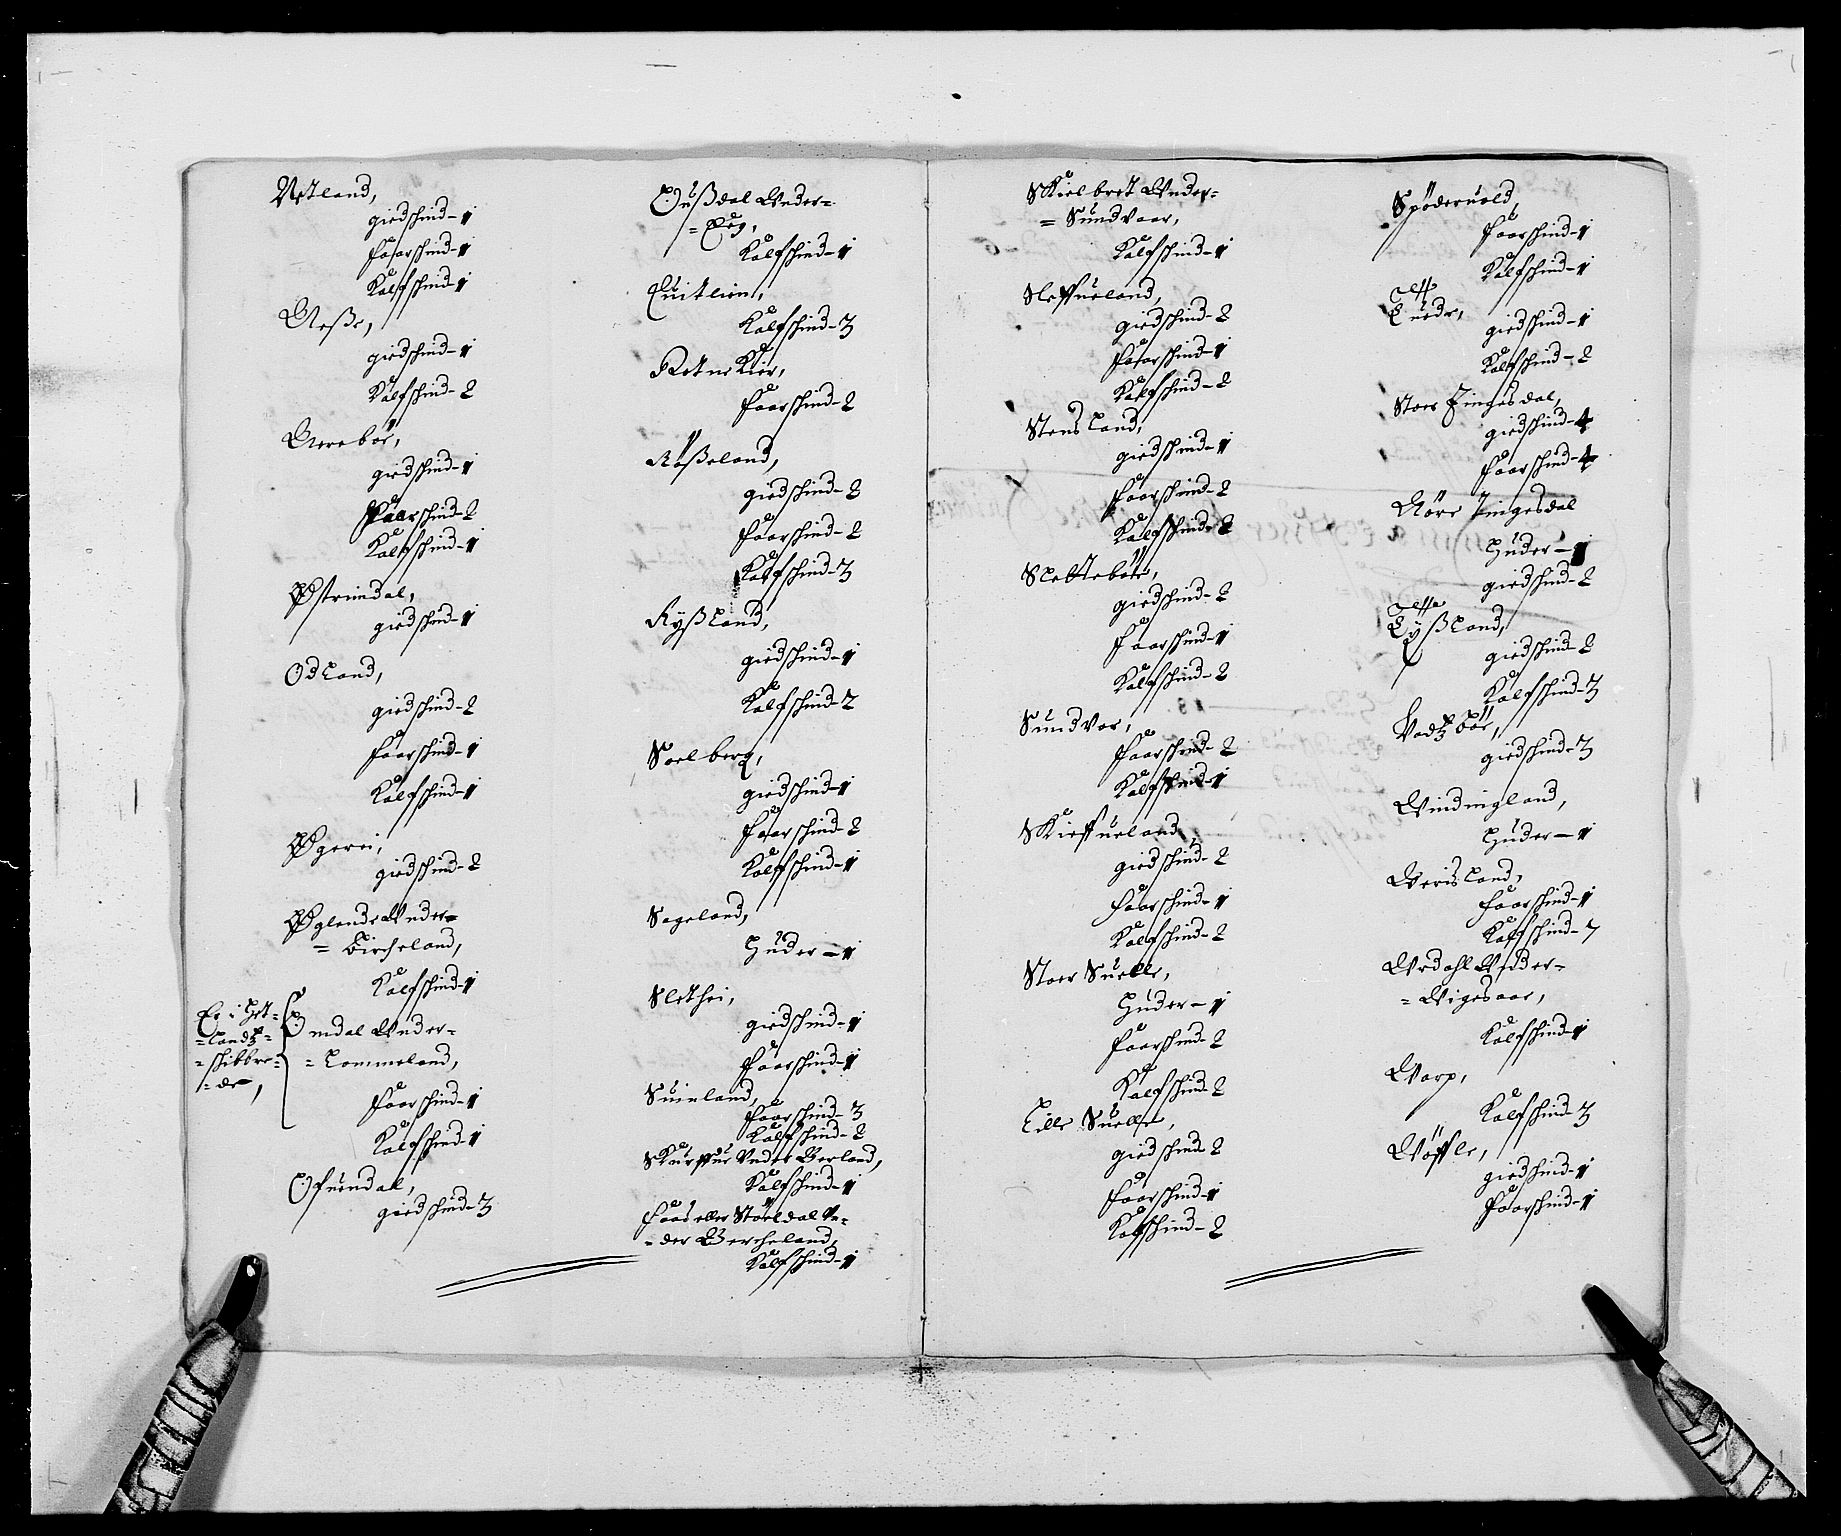 Netland,
giedschind - 1
Faarschind - 1
Kalfschind - 1
Neße,
giedschind - 1
Kalfschind - 2
Nerebör,
giedschind - 1
Faarschind - 2
Kalfschind - 1
Østrimdal,
giedschind - 1
Odland,
giedschind - 2
Faarschind - 1
Kalfschind - 1
Øgerei,
giedschind - 2
Øglend Wnder=
= Bircheland,
Kalfschind - 1
Er i Het=
=landtz=
=schibbre=
=de,
Omdal Wnder=
= Lommeland,
Faarschind - 1
Kalfschind - 1
Ofuendal,
giedschind - 3
Ousdal Wnder=
= Eeg,
Kalfschind - 1
Quitlien,
Kalfschind - 3
Faarschind - 2
Röszeland,
giedschind - 2
Faarschind - 2
Kalfschind - 3
Ryßland,
giedschind - 1
Kalfschind - 2
Soelberg,
giedschind - 1
Faarschind - 2
Kalfschind - 1
Sageland,
Huder - 1
Slethei,
giedschind - 1
Faarschind - 1
Suinland,
Faarschind - 3
Kalfschind - 2
Skurffue Vnder Berland,
Kalfschind - 1
Faas eller Stöeldal Vn=
=der Bercheland,
Kalfschind - 1
Skielbret Wnder=
= Sundvaar,
Kalfschind - 1
Sleffueland,
giedschind - 2
Faarschind - 1
Kalfschind - 2
Stensland,
giedschind - 1
Faarschind - 2
Kalfschind - 2
Slettebör,
giedschind - 2
Faarschind - 1
Kalfschind - 2
Sundvor,
Faarschind - 2
Kalfschind - 1
Skieffueland,
giedschind - 2
Faarschind - 1
Kalfschind - 2
Stoer Suelle,
Huder - 1
Faarschind - 2
Kalfschind - 2
Lille Suelle,
giedschind 2
Faarschind - 1
Kalfschind - 2
Spöderuold,
Faarschind - 1
Kalfschind - 1
giedschind - 1
Kalfschind - 2
Stoer Tingesdal,
giedschind - 4
Faarschind - 4
Nöre Tingesdal
Huder - 1
giedschind - 2
Tyßland,
giedschind - 2
Kalfschind - 3
Vadtzbör,
giedschind - 3
Windingland,
Huder - 1
Werisland,
Faarschind - 1
Kalfschind - 7
Wrdahl Wnder=
= Wigesaar,
Kalfschind - 1
Warp,
Kalfschind - 3
Wöffle,
giedschind - 1
Faarschind - 1